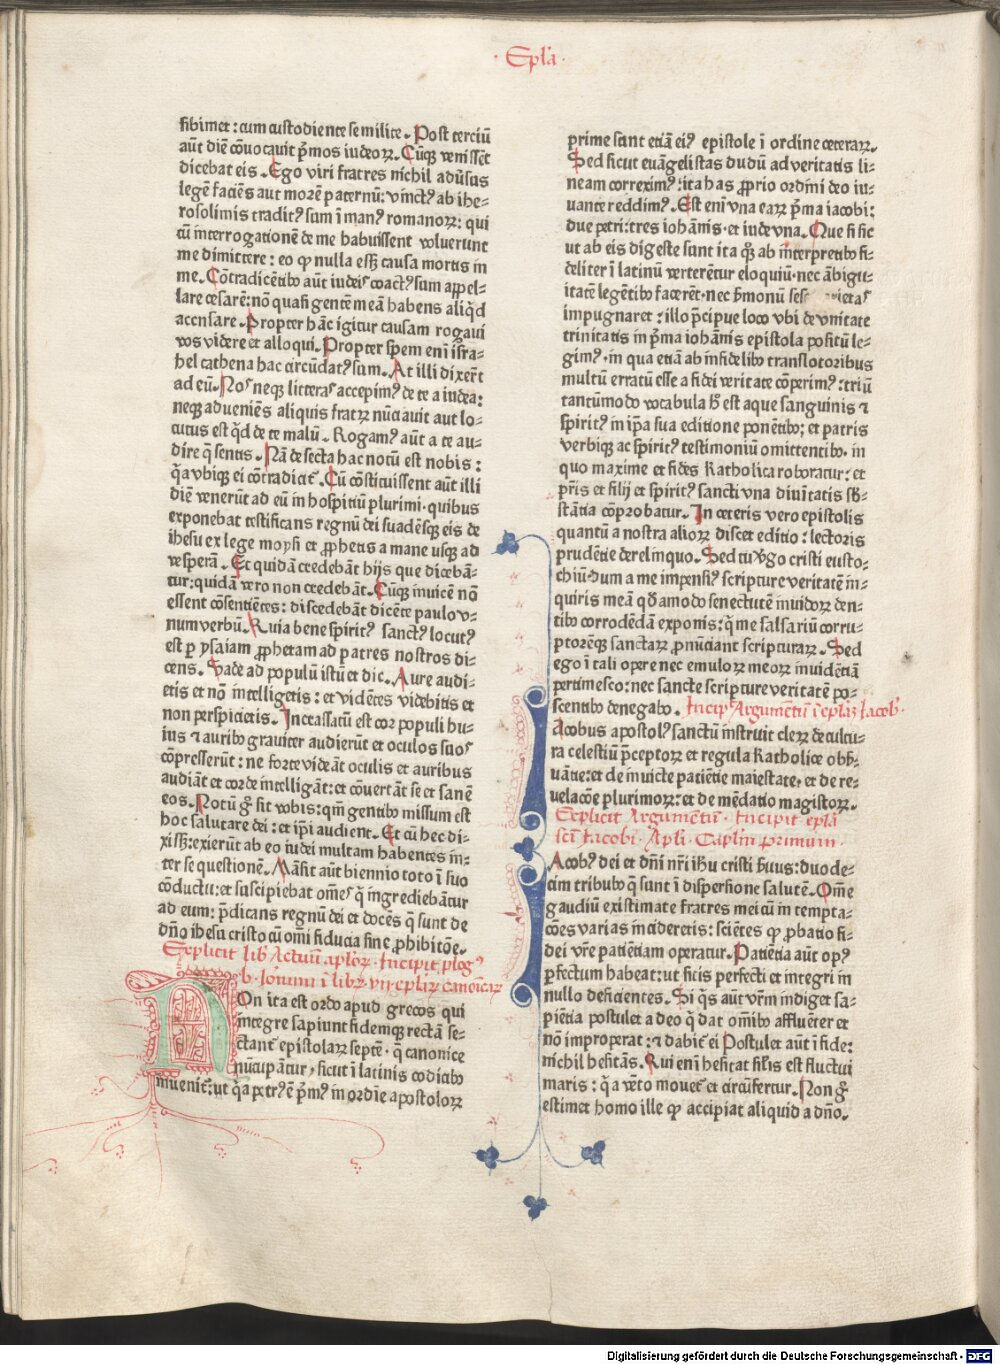 · Epła ·
sibimet : cum custodiente se milite . Post terciū
aūt diē cōuocauit p̄mos iudeoꝝ . Cūq; venissēt
dicebat eis . Ego viri fratres nichil adūsus
legē faciēs aut morē paternū : vinctꝰ ab ihe⸗
rosolimis traditꝰ sum ī manꝰ romanoꝝ : qui
cū interrogationē de me habuissent voluerunt
me dimittere : eo ꝙ nulla esset causa mortis in
me . Cōtradicētibꝰ aūt iudeis coactꝰ sum appel⸗
lare cesarē : nō quasi gentē meā habens aliq̄d
accusare . Propter hāc igitur causam rogaui
vos videre et alloqui . Propter spem enī isra⸗
hel cathena hac circūdatꝰ sum . At illi dixerūt
ad eū . Nos neq; litteras accepimꝰ de te a iudea :
neq; adueniēs aliquis fratrū nūciauit aut lo⸗
cutus est q̄d de te malū . Rogamꝰ aūt a te au⸗
dire q̄ sentis . Nā de secta hac notū est nobis :
q̄a vbiq; ei cōtradicit̄ . Cū cōstituissent aūt illi
diē venerūt ad eū in hospitiū plurimi . quibus
exponebat testificans regnū dei suadēsq; eis de
ihesu ex lege moysi et ꝓphetis a mane usq; ad
vesperā . Et quidā credebāt hijs que dicebā⸗
tur : quidā vero non credebāt . Cūq; inuicē nō
essent cōsentiētes : discedebāt dicēte paulo v⸗
num verbū . Quia bene spiritꝰ sanctꝰ locutꝰ
est ꝑ ysaiam ꝓphetam ad patres nostros di⸗
cens . Vade ad populū istū et dic . Aure audi⸗
etis et nō intelligetis : et vidētes videbitis et
non perspicietis . Incrassatū est cor populi hu⸗
ius ⁊ auribꝰ grauiter audierūt et oculos suos
cōpresserūt : ne forte videāt oculis et auribus
audiāt et corde intelligāt : et cōuertāt se et sanē
eos . Notū g̊ sit vobis : qm̄ gentibꝰ missum est
hoc salutare dei : et ip̄i audient . Et cū hec di⸗
xisset : exierūt ab eo iudei multam habentes in⸗
ter se questionē . Māsit aūt biennio toto ī suo
cōductu : et suscipiebat omēs q̄ ingrediebātur
ad eum : p̄dicans regnū dei et docēs q̄ sunt de
dn̄o ihesu cristo cū om̄i fiducia sine ꝓhibitōe .
Explicit lib̄ Actuū aplōꝝ . Incipit plogꝰ
b . Ieronimi ī libꝝ vij eplaꝝ canōicaꝝ
NOn ita est ordo apud grecos qui
integre sapiunt fidemq; rectā se⸗
ctant̄ epistolaꝝ septē . q̄ canonice
nūcupātur , sicut ī latinis codicibꝰ
inuenit̄ : ut q̄a petrꝰ ē p̄mꝰ in ordīe apostoloꝝ
prime sunt etiā eiꝰ epistole ī ordine ceteraꝝ .
Sed sicut euāgelistas dudū ad veritatis li⸗
neam correximꝰ : ita has ꝓprio ordini deo iu⸗
uante reddimꝰ . Est enī vna eaꝝ p̄ma iacobi :
due petri : tres iohānis . et iude vna . Que si sic
ut ab eis digeste sunt ita q̄ꝫ ab interpretibꝰ fi⸗
deliter ī latinū verterētur eloquiū . nec ābigui⸗
itatē legētibꝰ facerēt . nec s̄monū sese varietas
impugnaret : illo p̄cipue loco vbi de vnitate
trinitatis in p̄ma iohānis epistola positū le⸗
gimꝰ . in qua etiā ab infidelibꝰ translotoribus
multū erratū esse a fidei veritate cōperimꝰ : triū
tantūmodo vocabula h̄ est aque sanguinis ⁊
spiritꝰ in ip̄a sua editione ponētibꝰ ; et patris
verbiq; ac spiritꝰ testimoniū omittentibꝰ . in
quo maxime et fides Katholica roboratur : et
pr̄is et filij et spiritꝰ sancti vna diuītatis sb̄⸗
stātia cōprobatur . In ceteris vero epistolis
quantū a nostra alioꝝ discet editio : lectoris
prudētie derelinquo . Sed tu v̄go cristi eusto⸗
chiū . dum a me impensiꝰ scripture veritatē in⸗
quiris meā q̄dāmodo senectutē inuidoꝝ den⸗
tibꝰ corrodēdā exponis : q̄ me falsariū corru⸗
ptorēq; sanctaꝝ ꝓnūciant scripturaꝝ . Sed
ego ī tali opere nec emuloꝝ meoꝝ inuidētiā
pertimesco : nec sancte scripture veritatē po⸗
scentibꝰ denegabo . Incip̄ Argumētū ī eplaꝫ Iacob .
IAcobus apostolꝰ sanctū instruit cleꝝ de cultu⸗
ra celestiū p̄ceptoꝝ et regula Katholice obb̄⸗
uātie : et de inuicte patiētie maiestate . et de re⸗
uelacōe plurimoꝝ : et de mēdatio magistoꝝ .
Explicit Argumentū . Incipit epłā
sc̄i Iacobi . Apłi . Capłm primum .
IAcobꝰ dei et dn̄i nr̄i ihū cristi s̄uus : duode⸗
cim tribubꝰ q̄ sunt ī dispersione salutē . Om̄e
gaudiū existimate fratres mei cū in tempta⸗
cōes varias incideretis : sciētes ꝙ ꝓbatio fi⸗
dei vr̄e patiētiam operatur . Patiētia aūt opꝰ
ꝑfectum habeat : ut sitis perfecti et integri in
nullo deficientes . Si q̄s aūt vr̄m indiget sa⸗
piētia postulet a deo q̄ dat om̄ibꝰ affluēter et
nō improperat : ⁊ dabit̄ ei Postulet aūt ī fide :
nichil hesitās . Qui enī hesitat sil̄is est fluctui
maris : q̄ a vēto mouet̄ et circūfertur . Non g̊
estimet homo ille ꝙ accipiat aliquid a dn̄o .
Digitalisierung gefördert durch die Deutsche Forschungsgemeinschaft - DFG